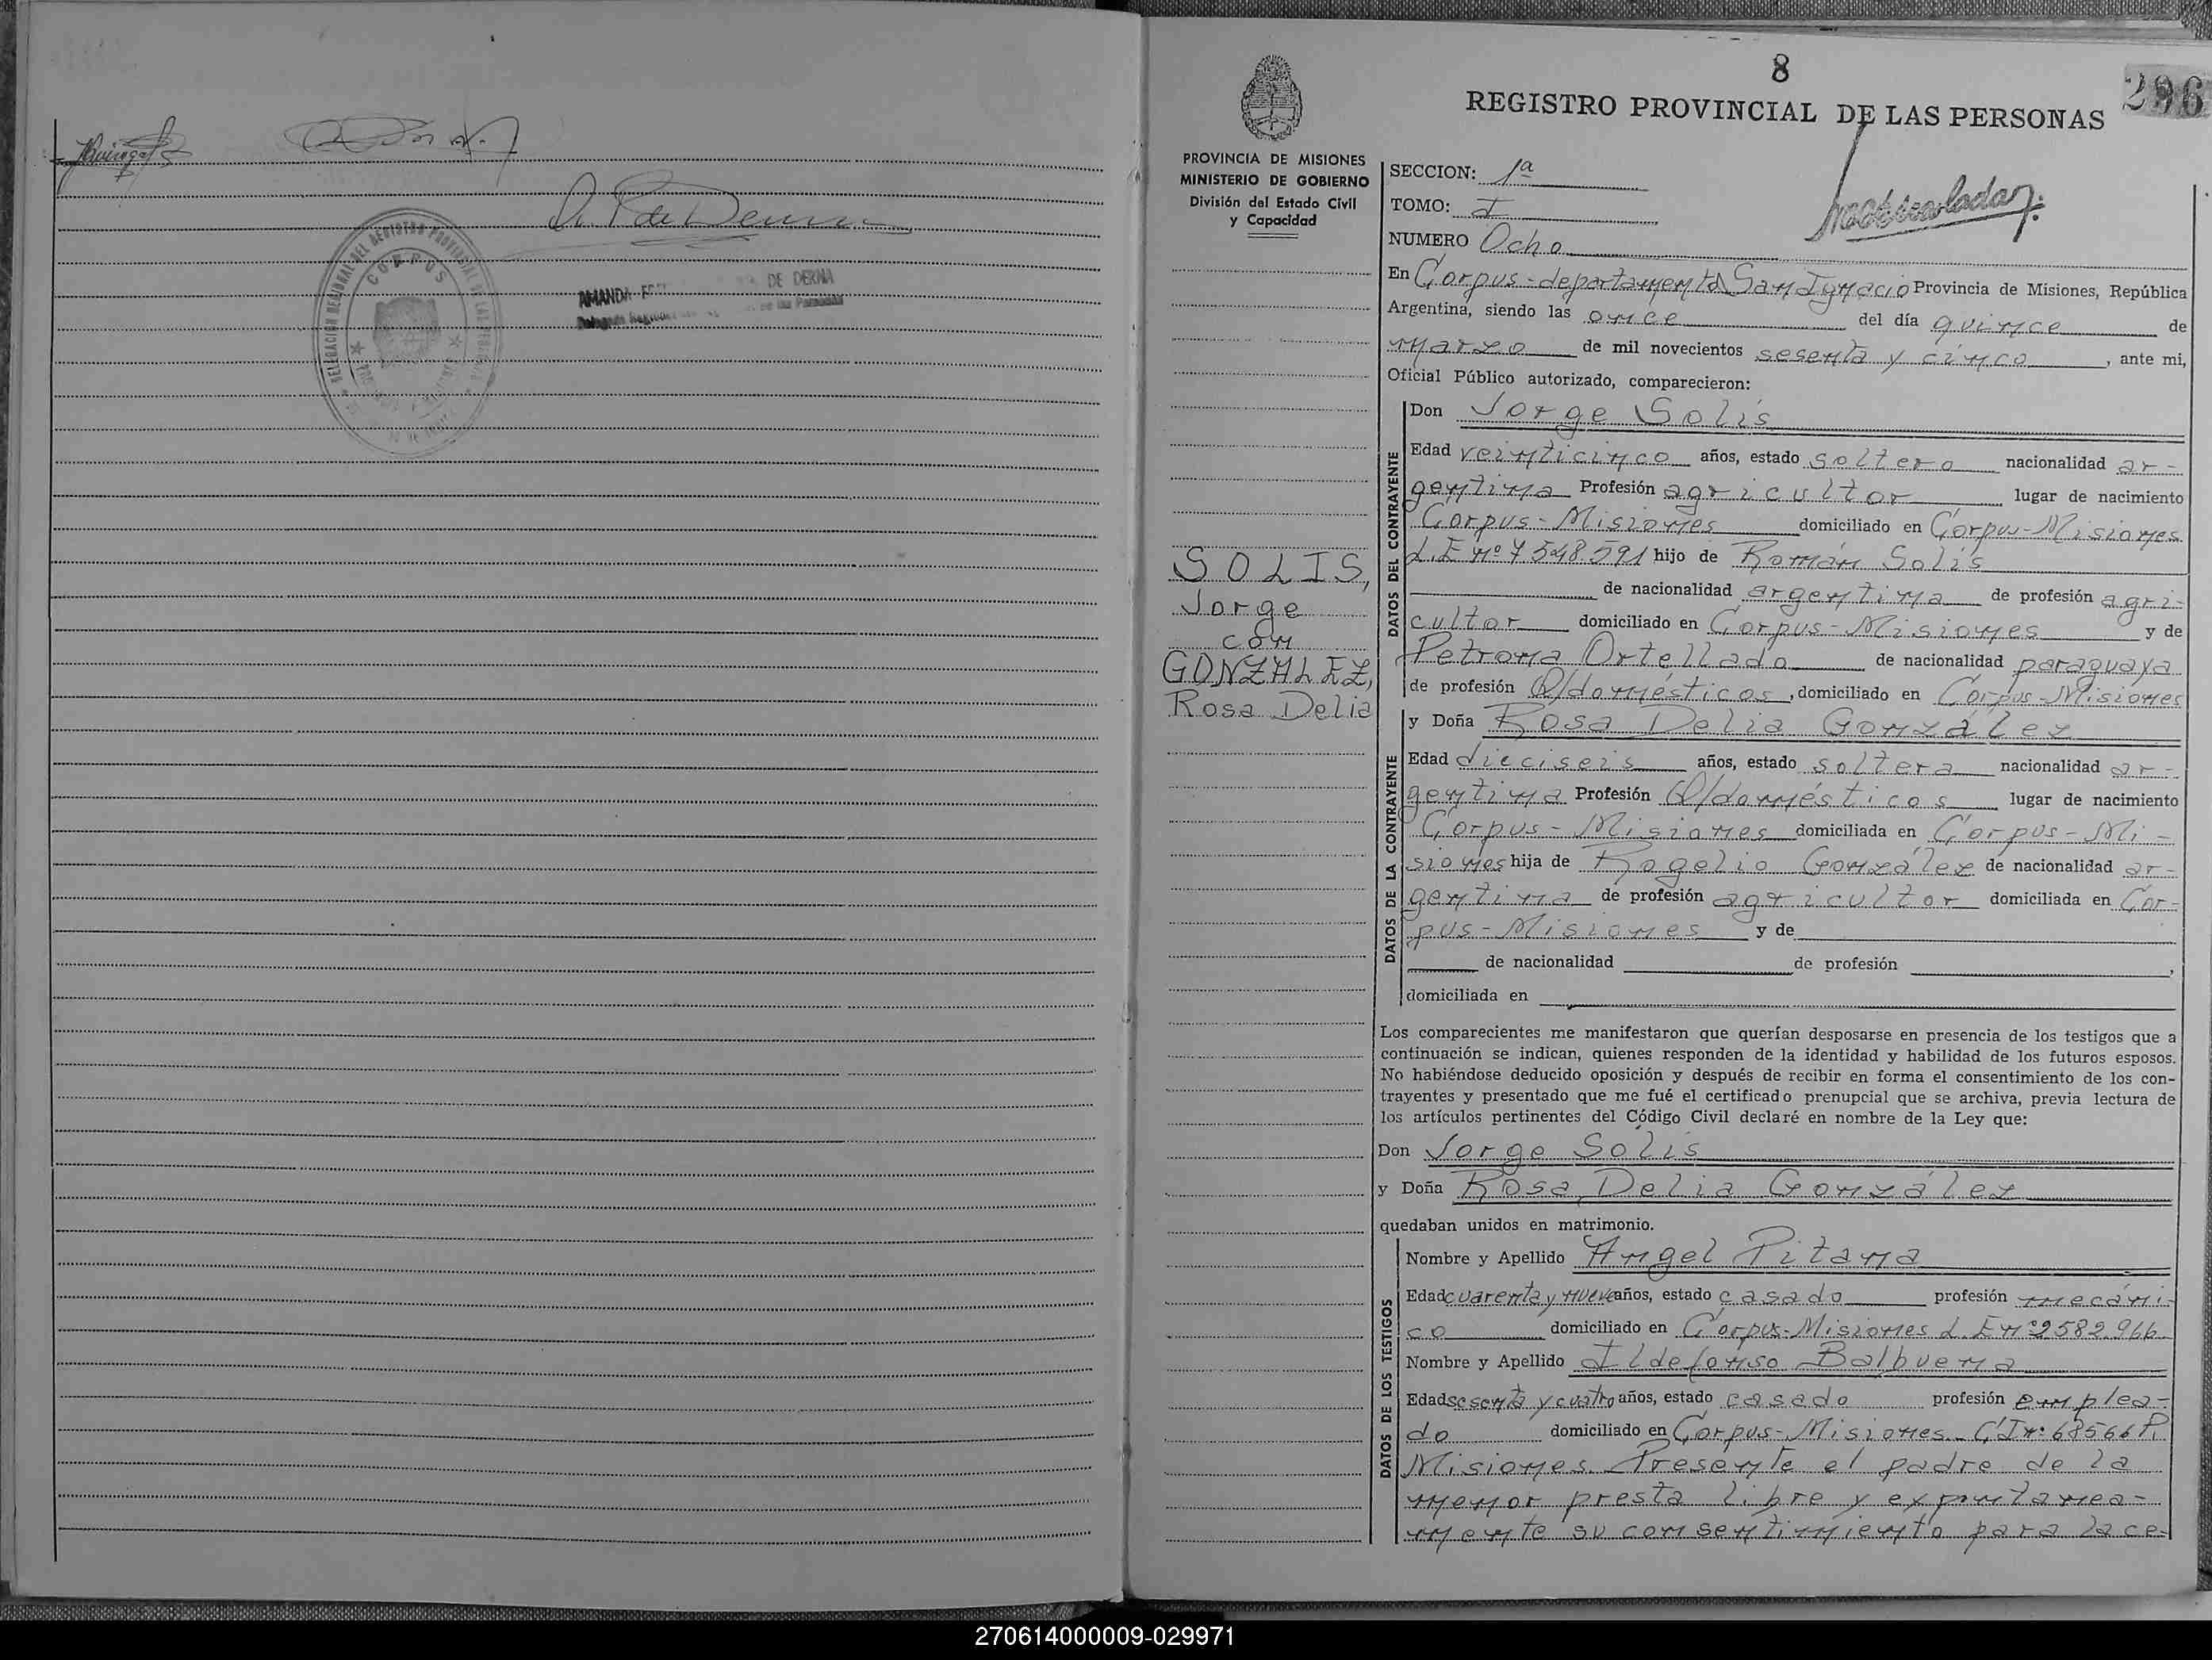 DELEGACION REGIONAL DEL REGISTRO PROVINCIAL DE LAS PERSONAS
CORPUS
AMANDA DE DERNA
8
296
REGISTRO PROVINCIAL DE LAS PERSONAS
PROVINCIA DE MISIONES
MINISTERIO DE GOBIERNO
División del Estado Civil
y Capacidad
SECCION: 1ª
TOMO: I
NUMERO Ocho
En Corpus-departamento San Ignacio Provincia de Misiones, República
Argentina, siendo las once del día quince de
marzo de mil novecientos sesenta y cinco, ante mi,
Oficial Público autorizado, comparecieron:
SOLIS,
Jorge
con
GONZALEZ,
Rosa Delia
DATOS DEL CONTRAYENTE
Don Jorge Solis
Edad veinticinco años, estado soltero nacionalidad ar-
gentina Profesión agricultor lugar de nacimiento
Corpus-Misiones domiciliado en Corpus-Misiones
L.E nº 7548.591 hijo de Román Solis
de nacionalidad argentina de profesión agri-
cultor domiciliado en Corpus-Misiones y de
Petrona Ortellado de nacionalidad paraguaya
de profesión Q/domésticos, domiciliado en Corpus-Misiones
DATOS DE LA CONTRAYENTE
y Doña Rosa Delia González
Edad dieciseis años, estado soltera nacionalidad ar-
gentina Profesión Q/domésticos lugar de nacimiento
Corpus-Misiones domiciliada en Corpus-Mi-
siones hija de Rogelio González de nacionalidad ar-
gentina de profesión agricultor domiciliada en Cor-
pus-Misiones y de
de nacionalidad de profesión ,
domiciliada en
Los comparecientes me manifestaron que querían desposarse en presencia de los testigos que a
continuación se indican, quienes responden de la identidad y habilidad de los futuros esposos.
No habiéndose deducido oposición y después de recibir en forma el consentimiento de los con-
trayentes y presentado que me fué el certificado prenupcial que se archiva, previa lectura de
los artículos pertinentes del Código Civil declaré en nombre de la Ley que:
Don Jorge Solis
y Doña Rosa Delia González
quedaban unidos en matrimonio.
DATOS DE LOS TESTIGOS
Nombre y Apellido Angel Pitana
Edad cuarenta y nueve años, estado casado profesión mecáni-
co domiciliado en Corpus-Misiones L.E nº 2582.966
Nombre y Apellido Ildefonso Balbuena
Edad sesenta y cuatro años, estado casado profesión emplea-
do domiciliado en Corpus-Misiones C.I nº 68566 P.
Misiones. Presente el padre de la
menor presta libre y expontanea-
mente su consentimiento para la ce-
270614000009-029971